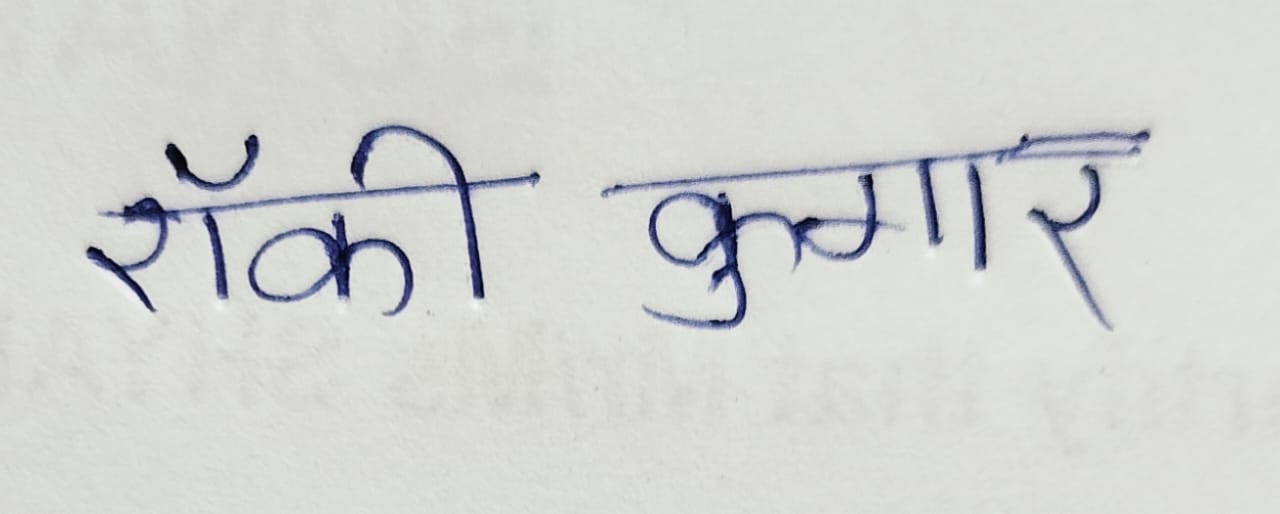 रॉकी कुमार